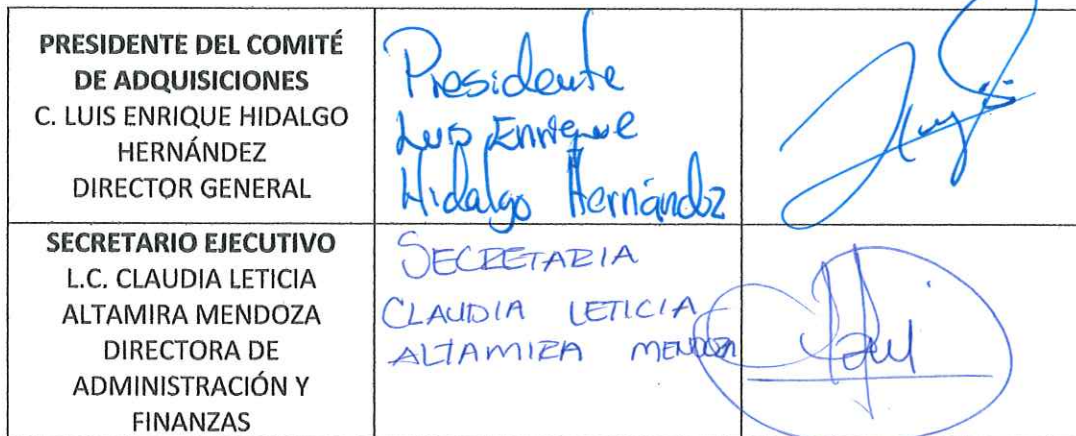 PRESIDENTE DEL COMITÉ
DE ADQUISICIONES
C. LUIS ENRIQUE HIDALGO
HERNÁNDEZ
DIRECTOR GENERAL
Presidente
Luis Enrique
Hidalgo Hernández
SECRETARIO EJECUTIVO
L.C. CLAUDIA LETICIA
ALTAMIRA MENDOZA
DIRECTORA DE
ADMINISTRACIÓN Y
FINANZAS
SECRETARIA
CLAUDIA LETICIA
ALTAMIRA MENDOZA